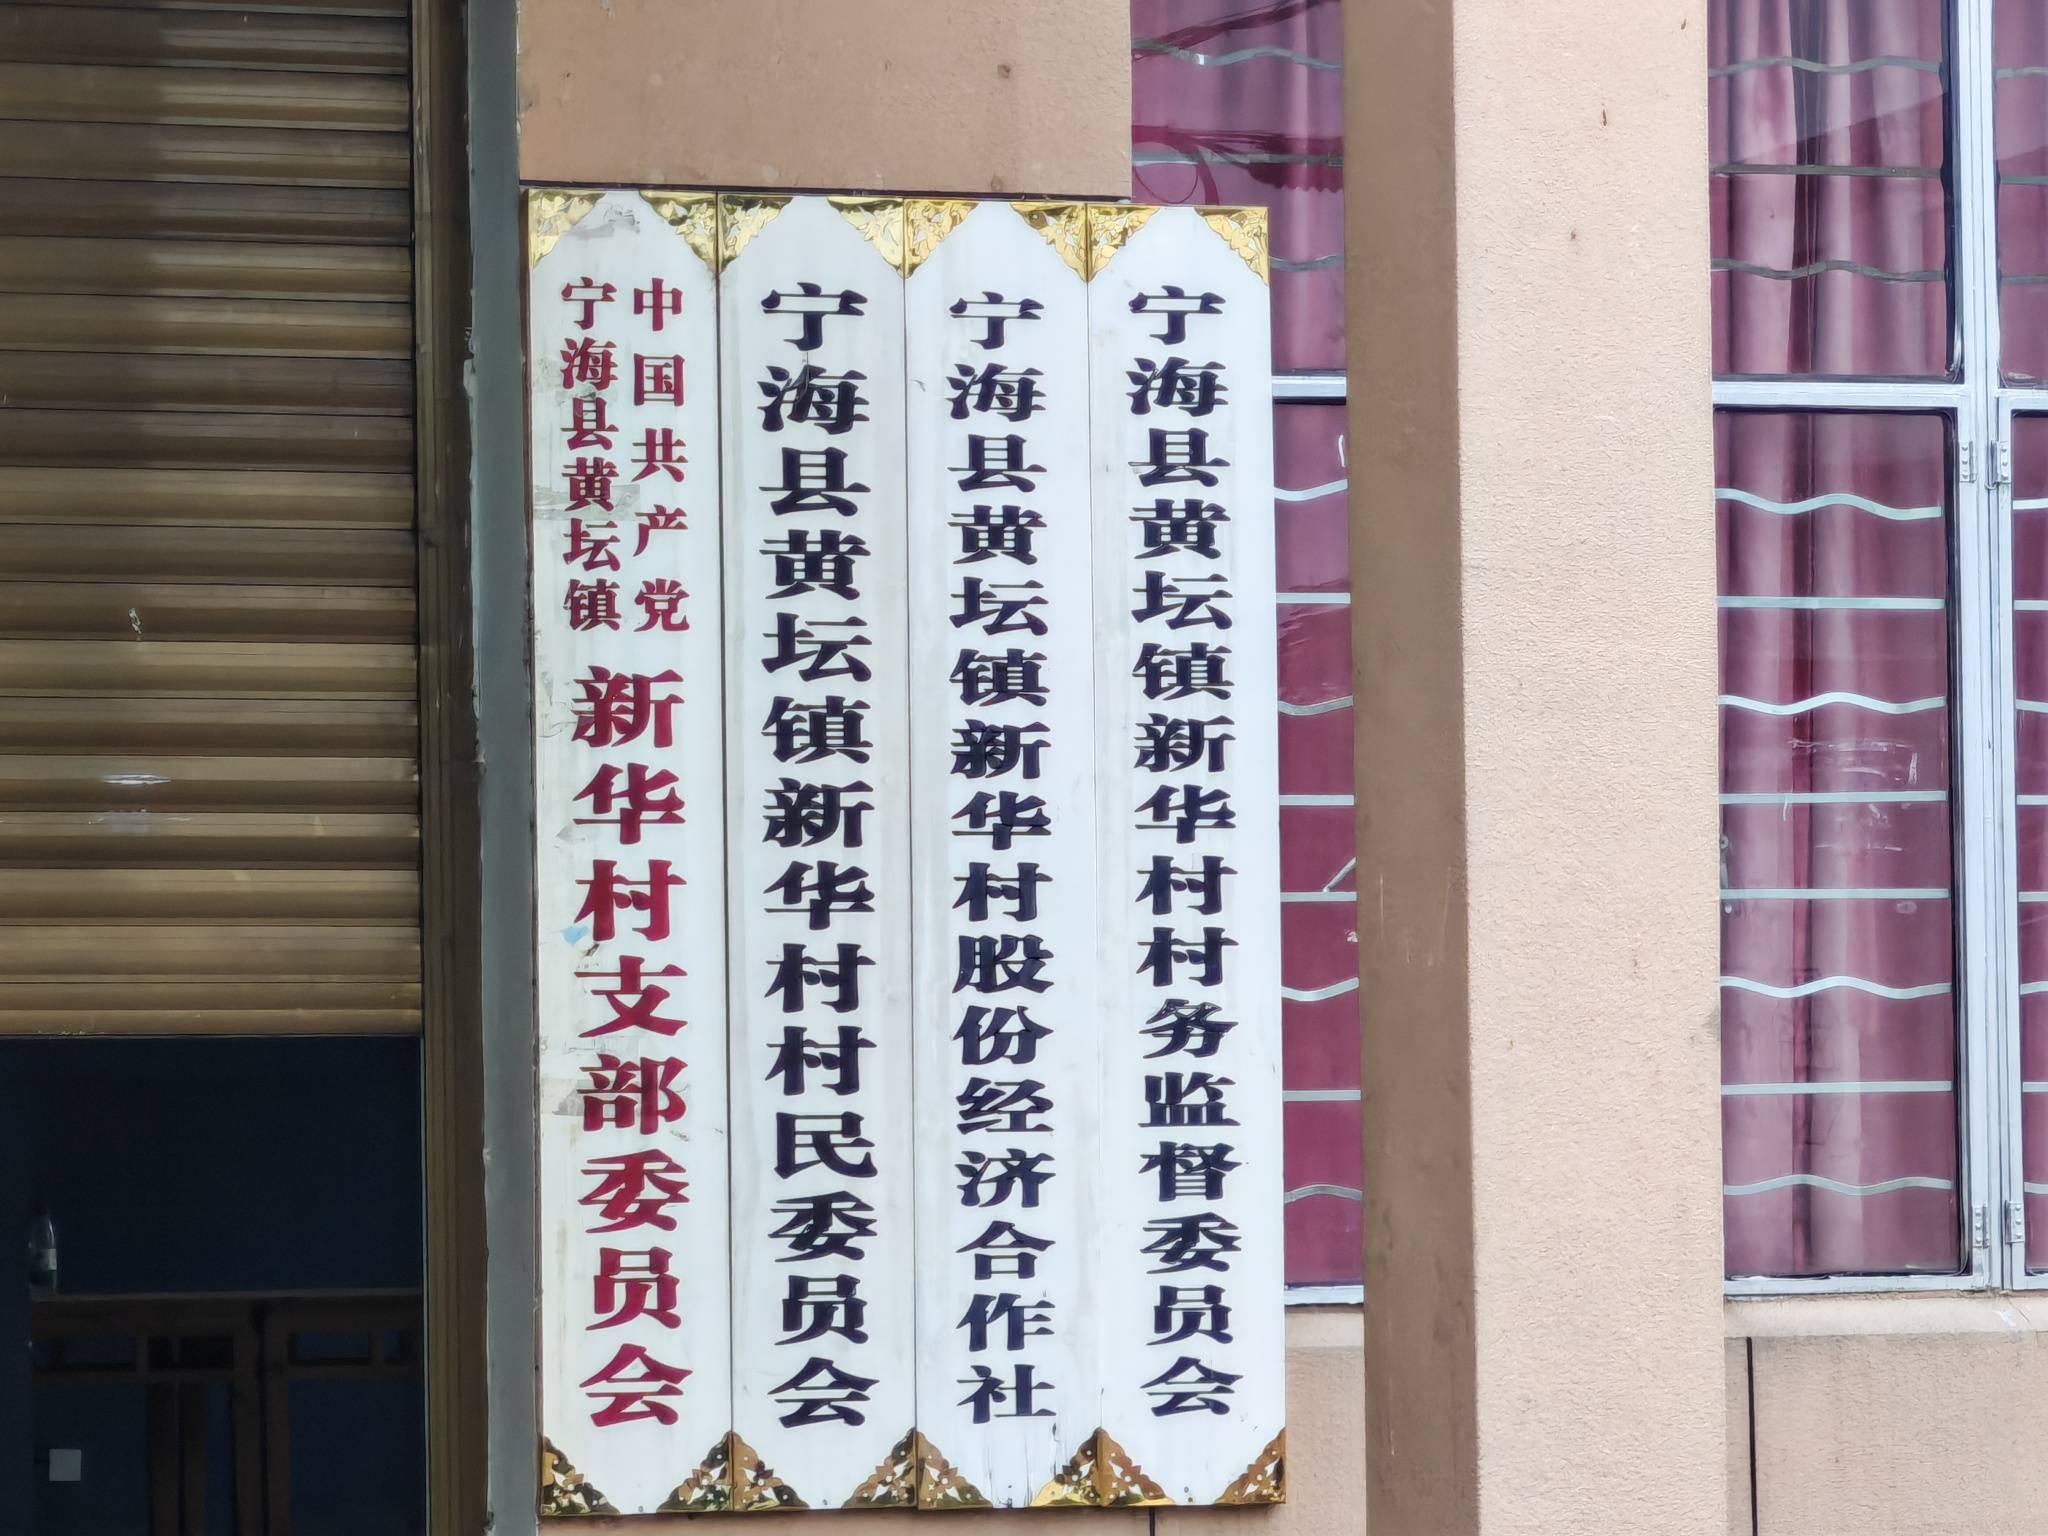 中国共产党
宁海县黄坛镇
新华村支部委员会
宁海县黄坛镇新华村村民委员会
宁海县黄坛镇新华村股份经济合作社
宁海县黄坛镇新华村村务监督委员会